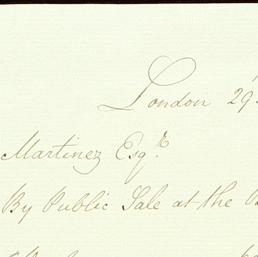 London 29
Martinez Esqr.
By Public Sale at the